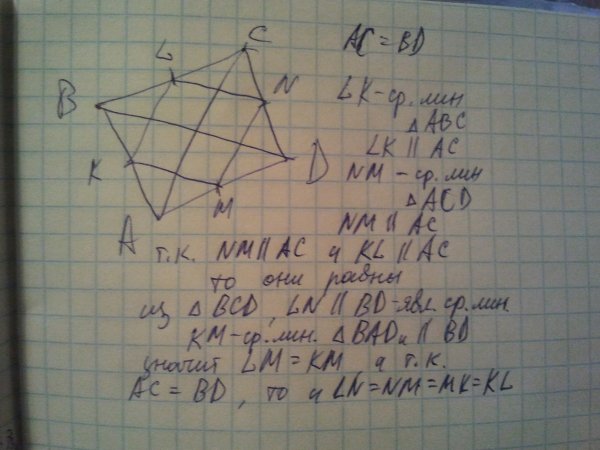 AC = BD
B
L
C
N
K
D
A
M
LK - ср. лин
△ABC
LK || AC
NM - ср. лин
△ACD
NM || AC
т.к. NM || AC и KL || AC
то они равны
из △BCD, LN || BD - явл. ср. лин.
KM - ср. лин. △BAD и || BD
значит LM = KM и т.к.
AC = BD, то и LN = NM = MK = KL